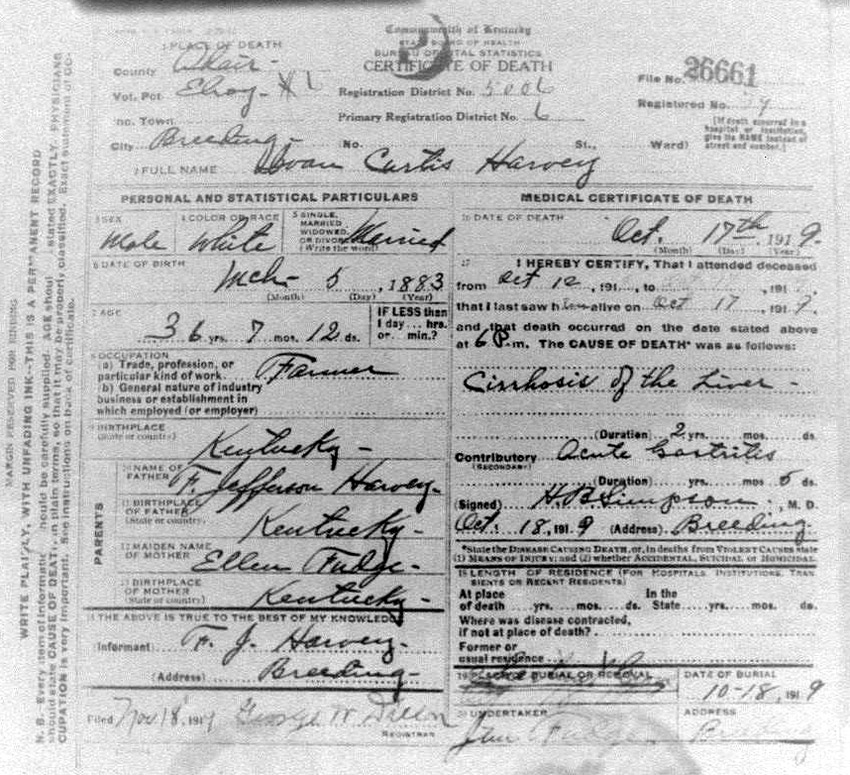 Commonwealth of Kentucky
STATE BOARD OF HEALTH
BUREAU OF VITAL STATISTICS
CERTIFICATE OF DEATH
1 PLACE OF DEATH
County Adair-
Vot. Pct. Elroy-
Inc. Town
City Breeding- No. St., Ward)
Registration District No. 5006
Primary Registration District No. 6
File No. 26661
Registered No.
[If death occurred in a hospital or institution, give its NAME instead of street and number.]
2 FULL NAME Curtis Harvey
PERSONAL AND STATISTICAL PARTICULARS
3 SEX Male
4 COLOR OR RACE White
5 SINGLE, MARRIED WIDOWED, OR DIVORCED (Write the word) Married
6 DATE OF BIRTH Mch- 5, 1883
(Month) (Day) (Year)
7 AGE 36 yrs. 7 mos. 12 ds.
IF LESS than 1 day... hrs. or... min.?
8 OCCUPATION
(a) Trade, profession, or particular kind of work Farmer
(b) General nature of industry business or establishment in which employed (or employer)
9 BIRTHPLACE
(State or country) Kentucky-
PARENTS
10 NAME OF FATHER F. Jefferson Harvey-
11 BIRTHPLACE OF FATHER (State or country) Kentucky-
12 MAIDEN NAME OF MOTHER Ellen Fudge-
13 BIRTHPLACE OF MOTHER (State or country) Kentucky-
14 THE ABOVE IS TRUE TO THE BEST OF MY KNOWLEDGE
Informant F. J. Harvey-
(Address) Breeding-
Filed Nov 18, 191 George W. Dillon
REGISTRAR
MEDICAL CERTIFICATE OF DEATH
16 DATE OF DEATH Oct. 17th, 1919.
(Month) (Day) (Year)
17 I HEREBY CERTIFY, That I attended deceased
from Oct 12, 191..., to 191
that I last saw him alive on Oct 17 1919.
and that death occurred on the date stated above
at 6 P.m. The CAUSE OF DEATH* was as follows:
Cirrhosis of the Liver-
(Duration) 2 yrs. mos. ds
Contributory Acute Gastritis
(SECONDARY)
(Duration) yrs. mos 5 ds.
(Signed) H. B. Simpson, M. D.
Oct. 18, 1919 (Address) Breeding.
*State the DISEASE CAUSING DEATH, or, in deaths from VIOLENT CAUSES state (1) MEANS OF INJURY; and (2) whether ACCIDENTAL, SUICIDAL or HOMICIDAL.
18 LENGTH OF RESIDENCE (FOR HOSPITALS, INSTITUTIONS, TRANSIENTS OR RECENT RESIDENTS)
At place of death yrs. mos. ds. In the State yrs. mos. ds.
Where was disease contracted, if not at place of death?
Former or usual residence
19 PLACE OF BURIAL OR REMOVAL
DATE OF BURIAL
10-18, 1919
20 UNDERTAKER
Fudge
ADDRESS
MARGIN RESERVED FOR BINDING
WRITE PLAINLY, WITH UNFADING INK--THIS IS A PERMANENT RECORD
N. B. Every item of information should be carefully supplied. AGE should stated EXACTLY. PHYSICIANS
should state CAUSE OF DEATH in plain terms, so that it may be properly classified. Exact statement of OC-
CUPATION is very important. See instructions on back of certificate.